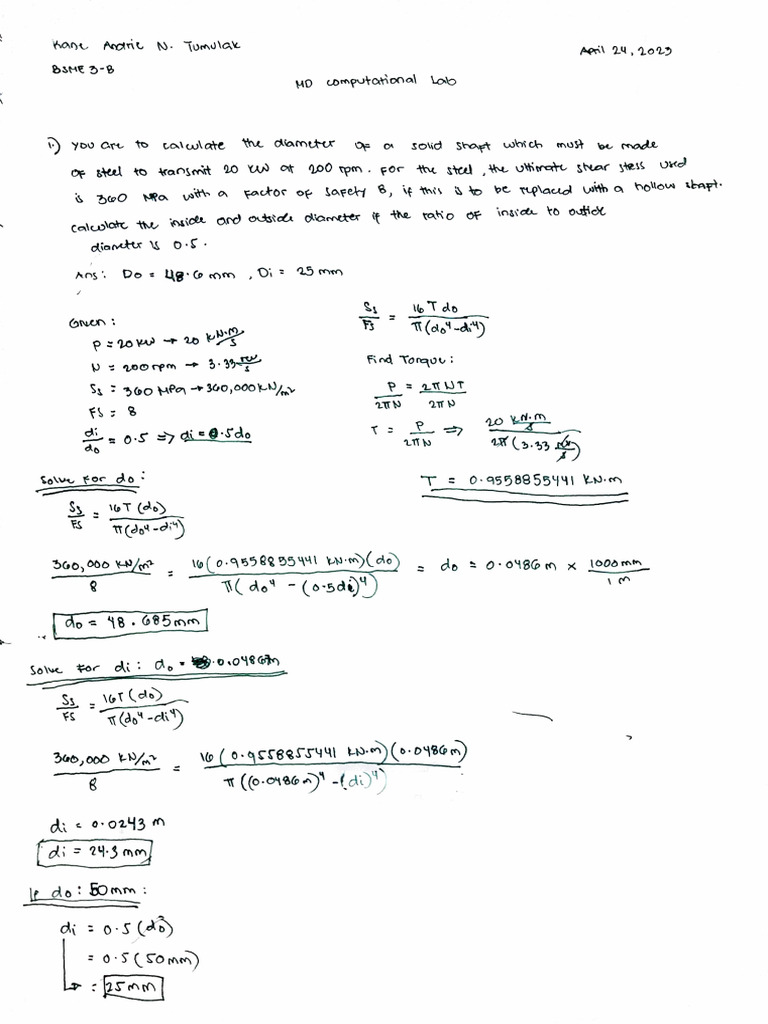 Kane Andrie N. Tumulak
April 24, 2023
BSME 3-B
MD Computational Lab
1.) You are to calculate the diameter of a solid shaft which must be made
of steel to transmit 20 kW at 200 rpm. For the steel, the ultimate shear stess used
is 360 MPa with a factor of safety 8, if this is to be replaced with a hollow shaft.
calculate the inside and outside diameter if the ratio of inside to outside
diameter is 0.5.
Ans: Do = 48.6 mm, Di = 25 mm
Given:
P = 20 kW → 20 kN·m/s
N = 200 rpm → 3.33 rev/s
Ss = 360 MPa → 360,000 kN/m²
FS = 8
di/do = 0.5 => di = 0.5do
Ss/FS = 16 T do / π(do⁴-di⁴)
Find Torque:
P/2πN = 2πNT/2πN
T = P/2πN => 20 kN·m/s / 2π(3.33 rev/s)
T = 0.9558855441 kN·m
Solve for do:
Ss/FS = 16T(do) / π(do⁴-di⁴)
360,000 kN/m² / 8 = 16(0.9558855441 kN·m)(do) / π(do⁴ - (0.5do)⁴) = do = 0.0486m × 1000mm / 1m
do = 48.685mm
Solve for di: do = 0.0486m
Ss/FS = 16T(do) / π(do⁴-di⁴)
360,000 kN/m² / 8 = 16(0.9558855441 kN·m)(0.0486m) / π((0.0486m)⁴ - (di)⁴)
di = 0.0243 m
di = 24.3 mm
If do: 50mm:
di = 0.5(do)
= 0.5(50mm)
= 25mm